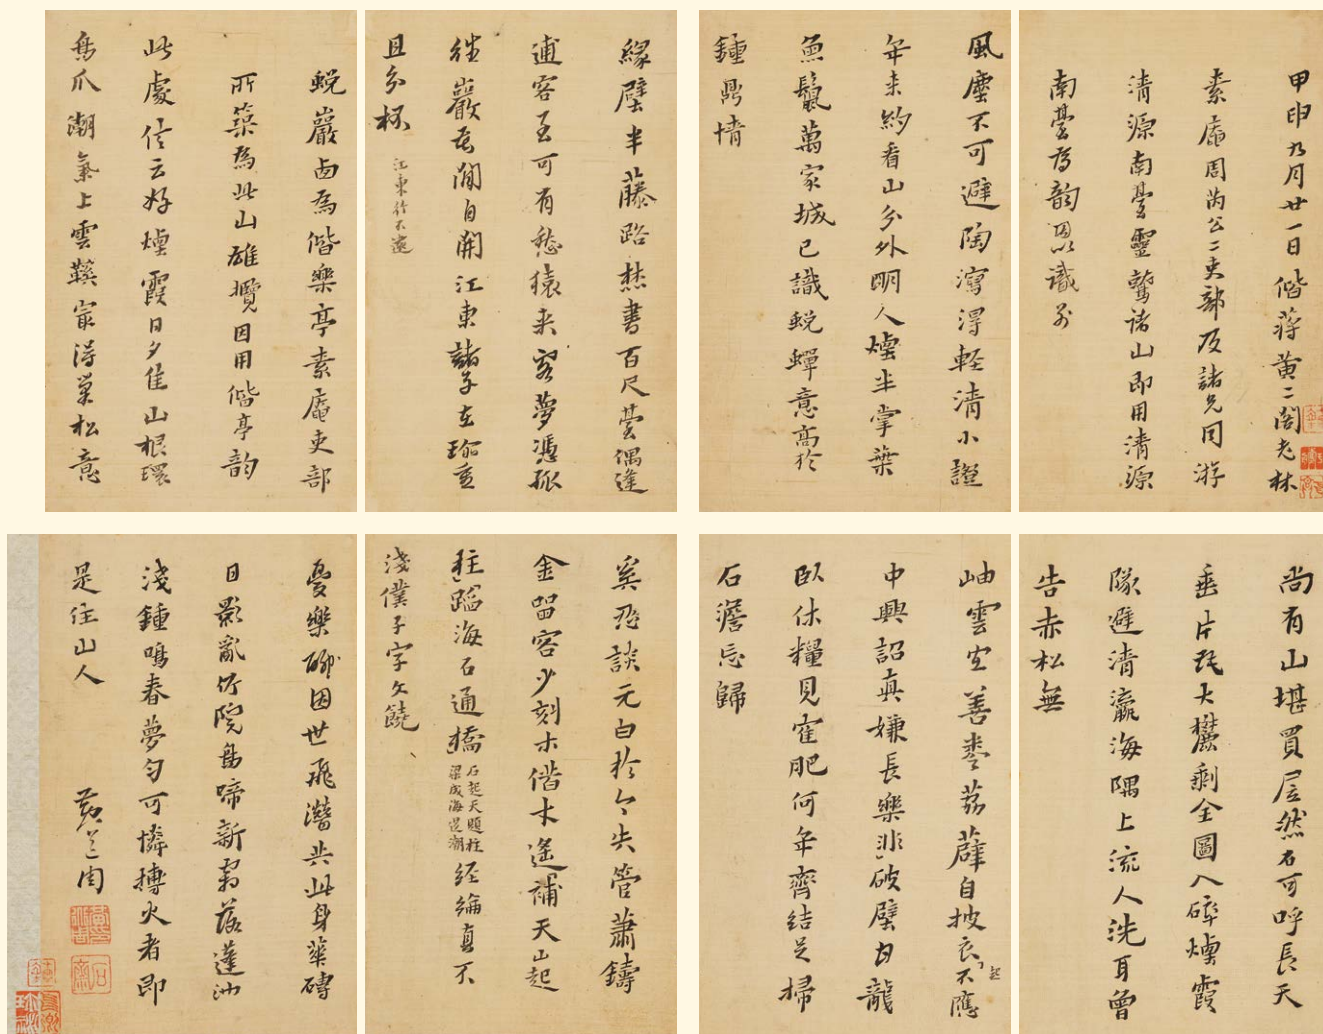 甲申九月廿一日偕蔣黃二閣老林
素庵周芮公二吏部及諸兄同游
清源南臺靈鷲諸山即用清源
南臺為韻因以識別
風塵不可避陶瀉得輕清小證
年來約看山分外明人煙半掌葉
魚鬣萬家城已識蛻蟬意高於
鍾鼎情
緣壁半藤路焚書百尺臺偶逢
逋客至可有愁猿來客夢憑孤
綫巖花閒自開江東諸子在珍重
且分杯
江東待不遠
蛻巖西為偕樂亭素庵吏部
所築為此山雄攬因用偕亭韵
此處信云好煙霞日夕佳山根環
鳥爪潮氣上雲鞋窅得巢松意
尚有山堪買居然石可呼長天
垂片瓦大欎剩全圖入磴煙霞
隊避清瀛海隅上流人洗耳曾
告赤松無
岫雲空善卷荔薜自披衣不應
起
中興詔真嫌長樂非破壁日龍
臥休糧見隺肥何年齊結足掃
石澹忘歸
奚忍談元白於今失管蕭鑄
金留客少刻木偕木遙補天山起
柱蹈海石通橋
石起天題柱
梁成海是潮
經綸真不
淺僕子字文饒
憂樂聊因世飛潛共此身葉磚
日影亂竹院鳥啼新霜落蓮池
淺鍾鳴春夢勻可憐摶火者即
是住山人
黃道周